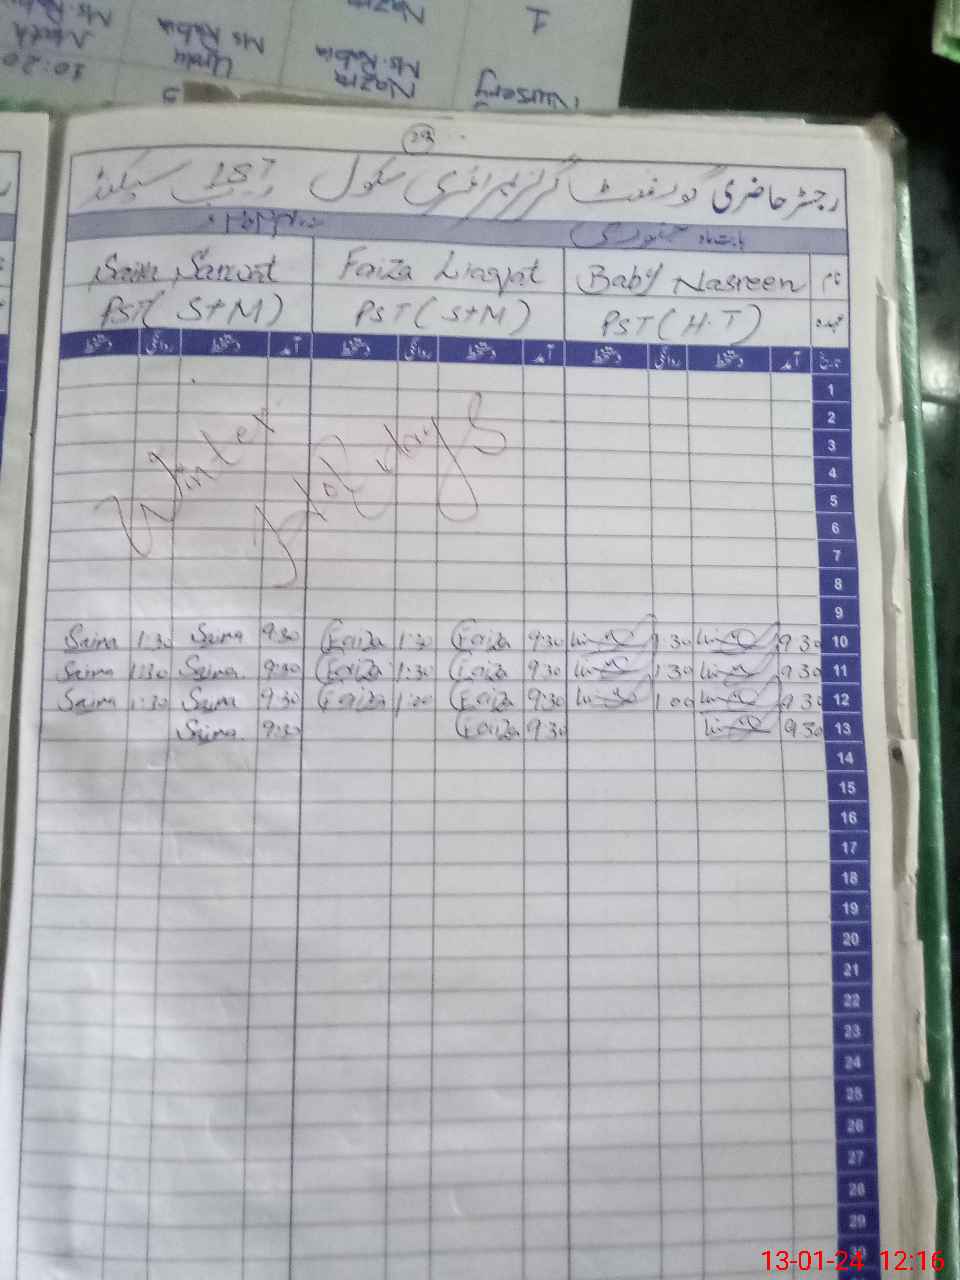 Nazra
1
10:20
Math
Ms. Rabia
5
Urdu
Ms Rabia
Nazra
Ms. Rabia
Nursery
رجسٹر حاضری گورنمنٹ گرلز پرائمری سکول
بابت ماہ جنوری
Saima Sarwat Faiza Liaqat Baby Nasreen نام
PST( S+M) PST( S+M) PST( H.T) عہدہ
دستخط روانگی دستخط آمد دستخط روانگی دستخط آمد دستخط روانگی دستخط آمد تاریخ
1
2
3
4
5
6
7
8
9
Winter Holidays
Saima 1:30 Saima 9:30 Faiza 1:30 Faiza 9:30 1:30 9:30 10
Saima 1:30 Saima 9:30 Faiza 1:30 Faiza 9:30 1:30 9:30 11
Saima 1:30 Saima 9:30 Faiza 1:00 Faiza 9:30 1:00 9:30 12
Saima 9:30 Faiza 9:30 9:30 13
14
15
16
17
18
19
20
21
22
23
24
25
26
27
28
29
30
13-01-24 12:16